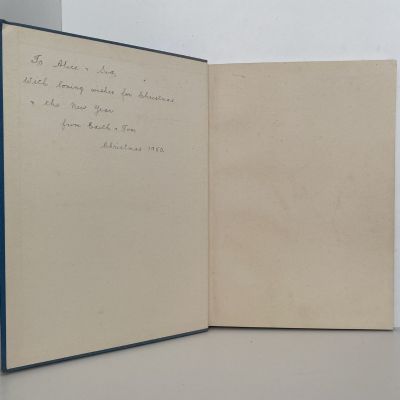 To Alice &
With loving wishes for Christmas
& the New Year
from & Tom
Christmas 1950